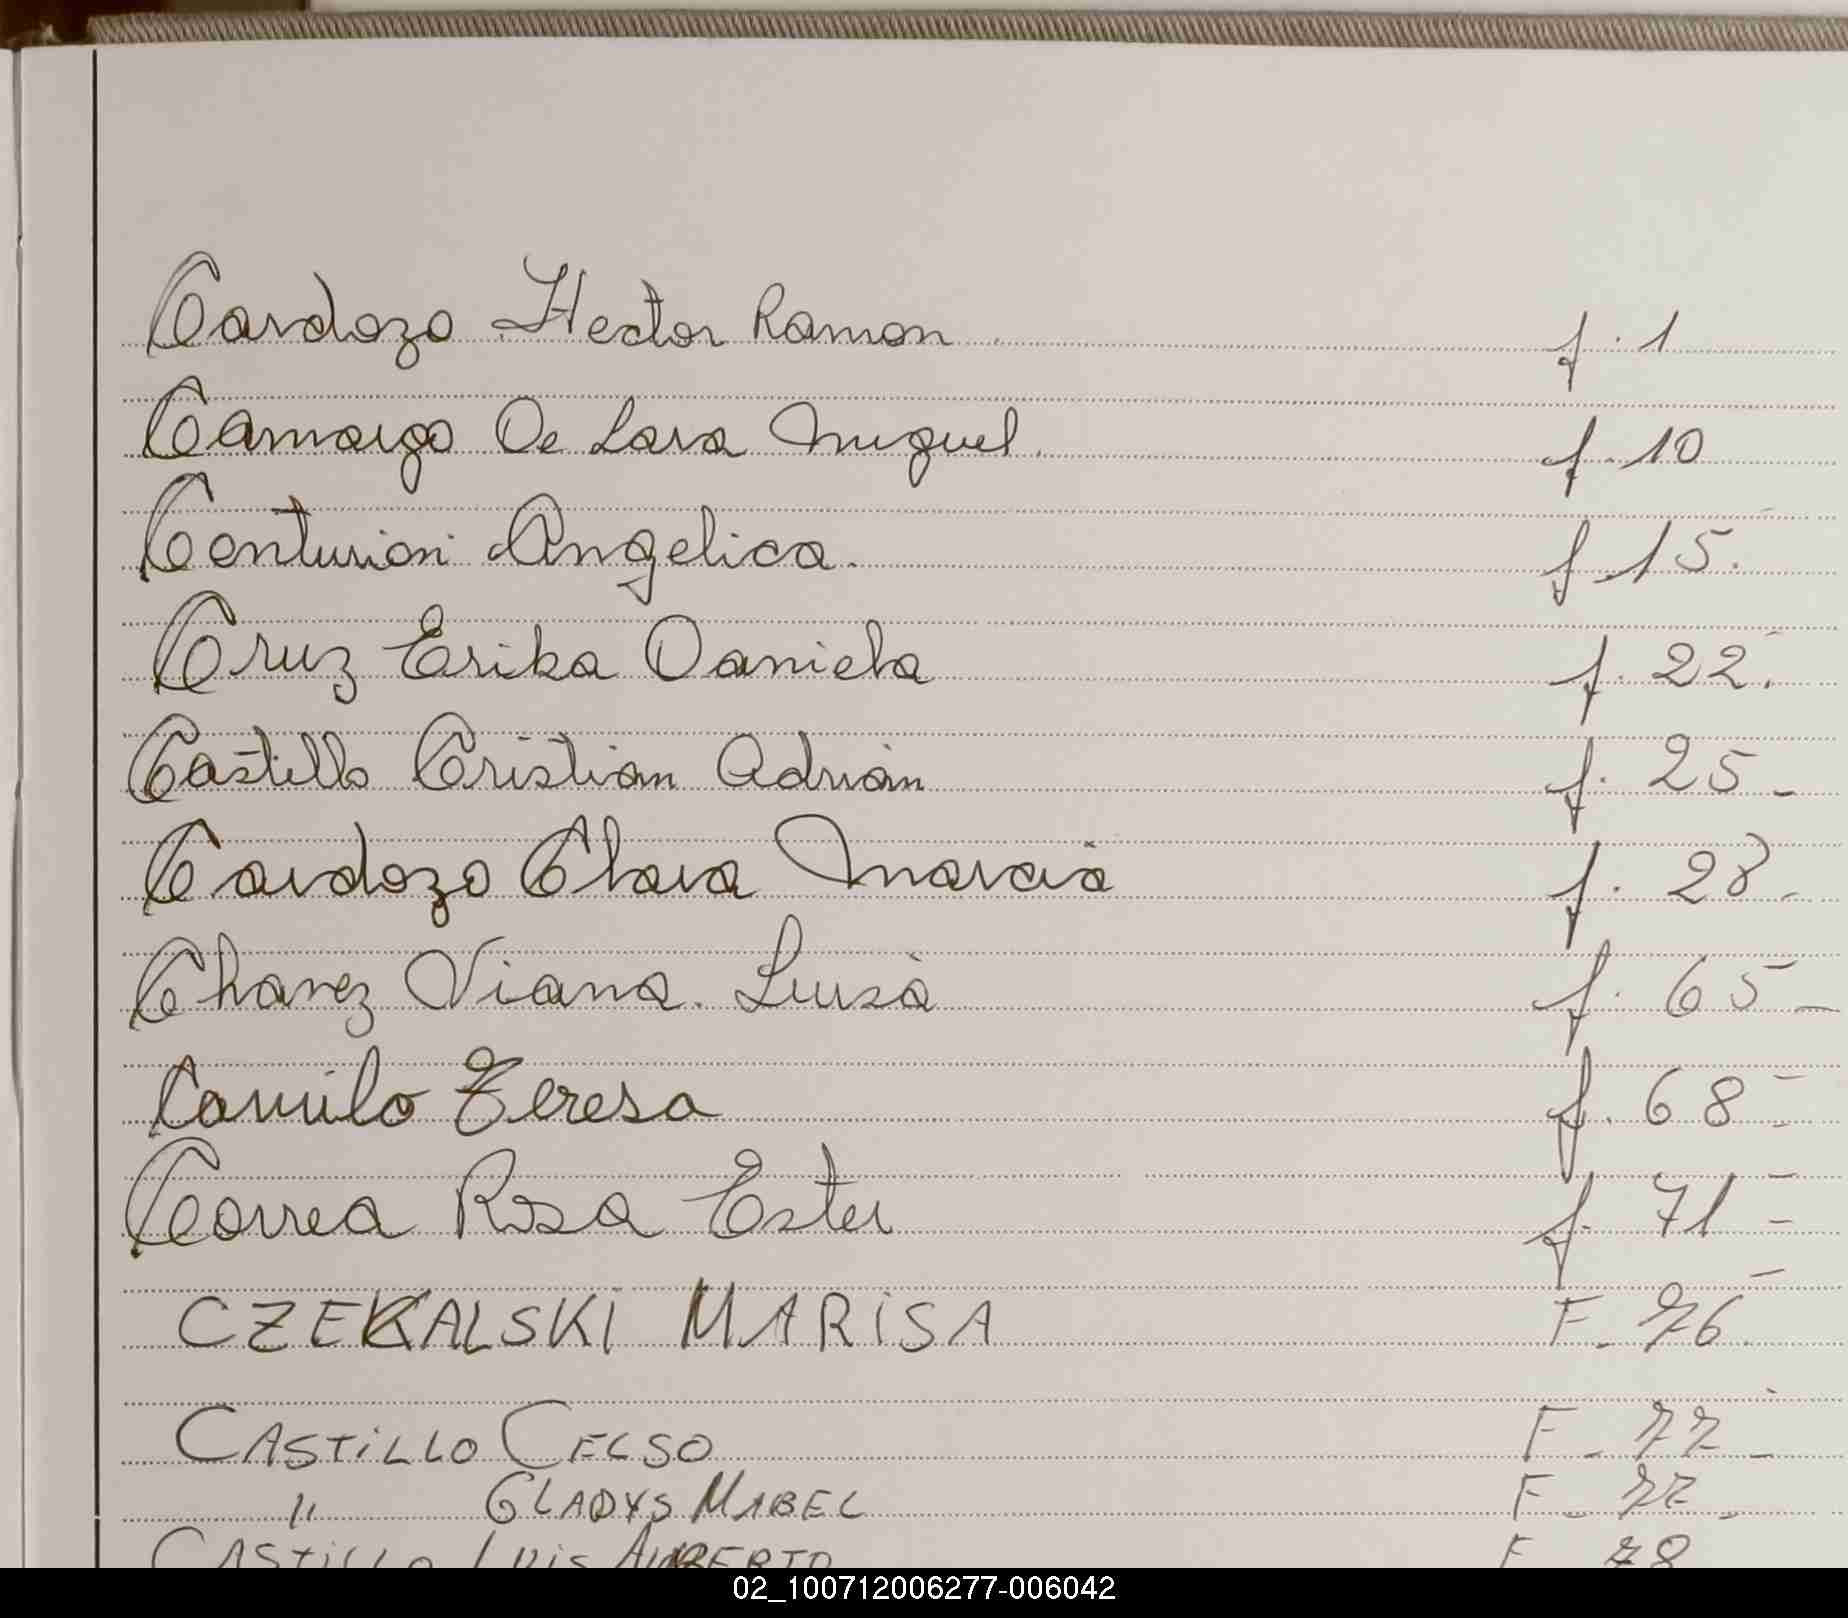 Cardozo Hector Ramon f. 1
Camargo De Lara Miguel. f. 10
Centurion Angelica. f. 15.
Cruz Erika Daniela f. 22.
Castillo Cristian Adrian f. 25 -
Cardozo Clara Marcia f. 28 -
Chavez Viana. Luisa f. 65 -
Camilo Teresa f. 68 =
Correa Rosa Ester f. 71 =
CZEKALSKI MARISA F. 76
CASTILLO CELSO F - 77 -
" GLADYS MABEL F - 77 -
CASTILLO LUIS ALBERTO F 78
02_100712006277-006042